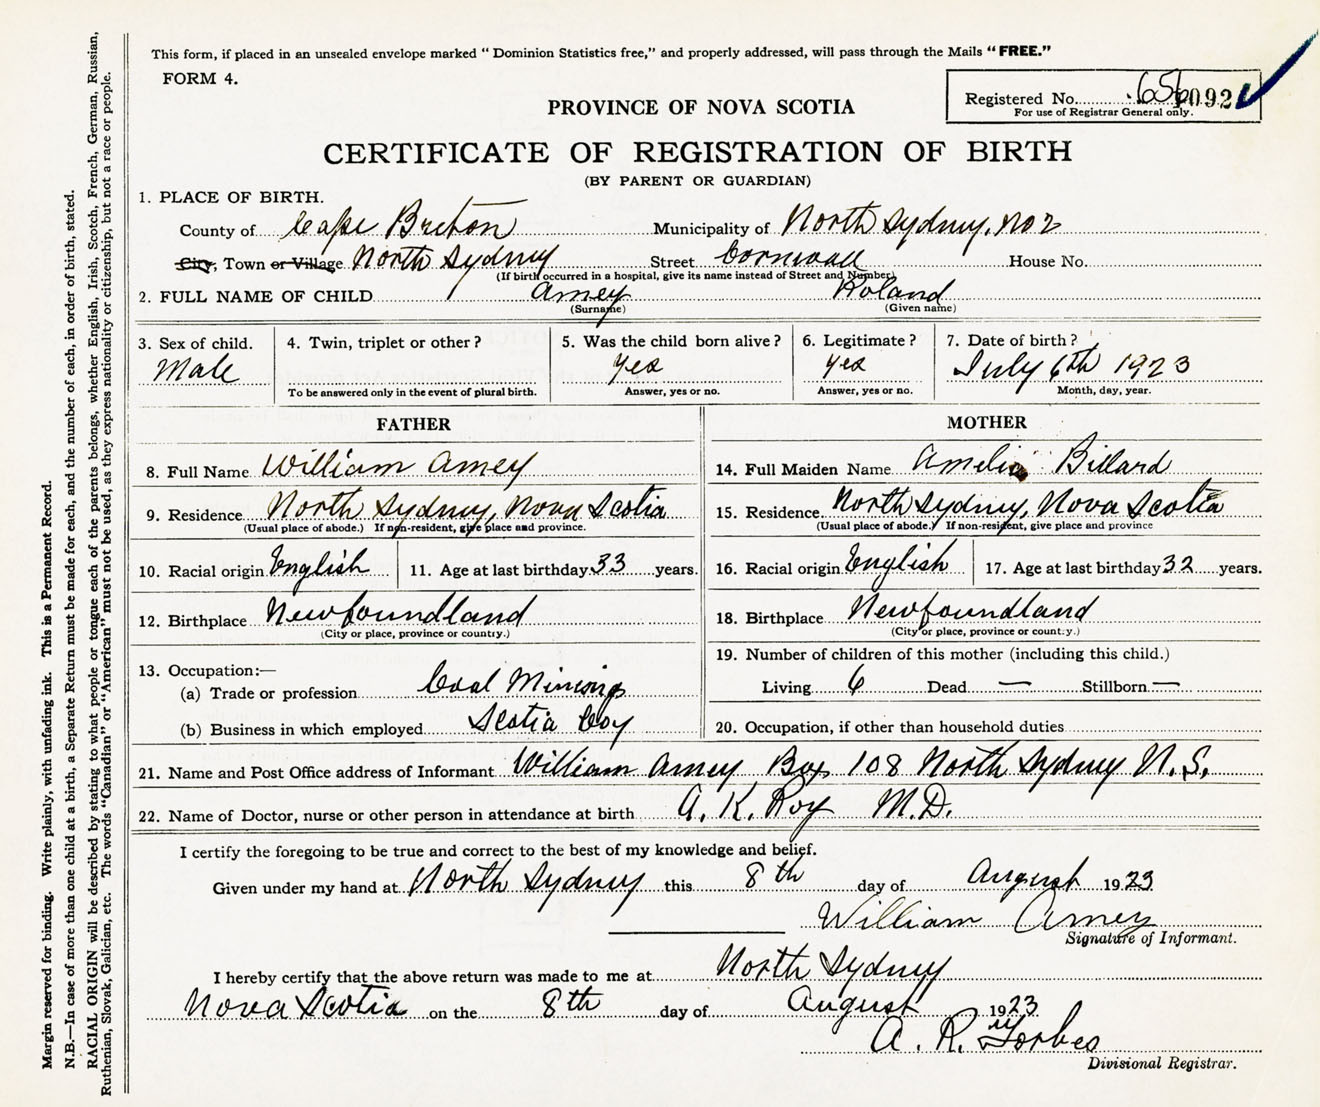 This form, if placed in an unsealed envelope marked "Dominion Statistics free," and properly addressed, will pass through the Mails "FREE."
FORM 4.
Registered No. 656 092
For use of Registrar General only.
PROVINCE OF NOVA SCOTIA
CERTIFICATE OF REGISTRATION OF BIRTH
(BY PARENT OR GUARDIAN)
1. PLACE OF BIRTH.
County of Cape Breton Municipality of North Sydney, No 2
City, Town or Village North Sydney Street Cornwall House No.
(If birth occurred in a hospital, give its name instead of Street and Number)
2. FULL NAME OF CHILD Amey Roland
(Surname) (Given name)
3. Sex of child. 4. Twin, triplet or other? 5. Was the child born alive? 6. Legitimate? 7. Date of birth?
Male Yes Yes July 6th 1923
To be answered only in the event of plural birth. Answer, yes or no. Answer, yes or no. Month, day, year.
FATHER MOTHER
8. Full Name William Amey 14. Full Maiden Name Amelia Billard
9. Residence North Sydney, Nova Scotia 15. Residence North Sydney, Nova Scotia
(Usual place of abode.) If non-resident, give place and province. (Usual place of abode.) If non-resident, give place and province
10. Racial origin English 11. Age at last birthday 33 years. 16. Racial origin English 17. Age at last birthday 32 years.
12. Birthplace Newfoundland 18. Birthplace Newfoundland
(City or place, province or country.) (City or place, province or country.)
13. Occupation:— 19. Number of children of this mother (including this child.)
(a) Trade or profession Coal Mining Living 6 Dead — Stillborn —
(b) Business in which employed Scotia Coy 20. Occupation, if other than household duties
21. Name and Post Office address of Informant William Amey Box 108 North Sydney N.S.
22. Name of Doctor, nurse or other person in attendance at birth A. K. Roy M.D.
I certify the foregoing to be true and correct to the best of my knowledge and belief.
Given under my hand at North Sydney this 8th day of August 1923
William Amey
Signature of Informant.
I hereby certify that the above return was made to me at North Sydney
Nova Scotia on the 8th day of August 1923
A. R. Forbes
Divisional Registrar.
Margin reserved for binding. Write plainly, with unfading ink. This is a Permanent Record.
N.B.—In case of more than one child at a birth, a Separate Return must be made for each, and the number of each, in order of birth, stated.
RACIAL ORIGIN will be described by stating to what people or tongue each of the parents belongs, whether English, Irish, Scotch, French, German, Russian,
Ruthenian, Slovak, Galician, etc. The words "Canadian" or "American" must not be used, as they express nationality or citizenship, but not a race or people.